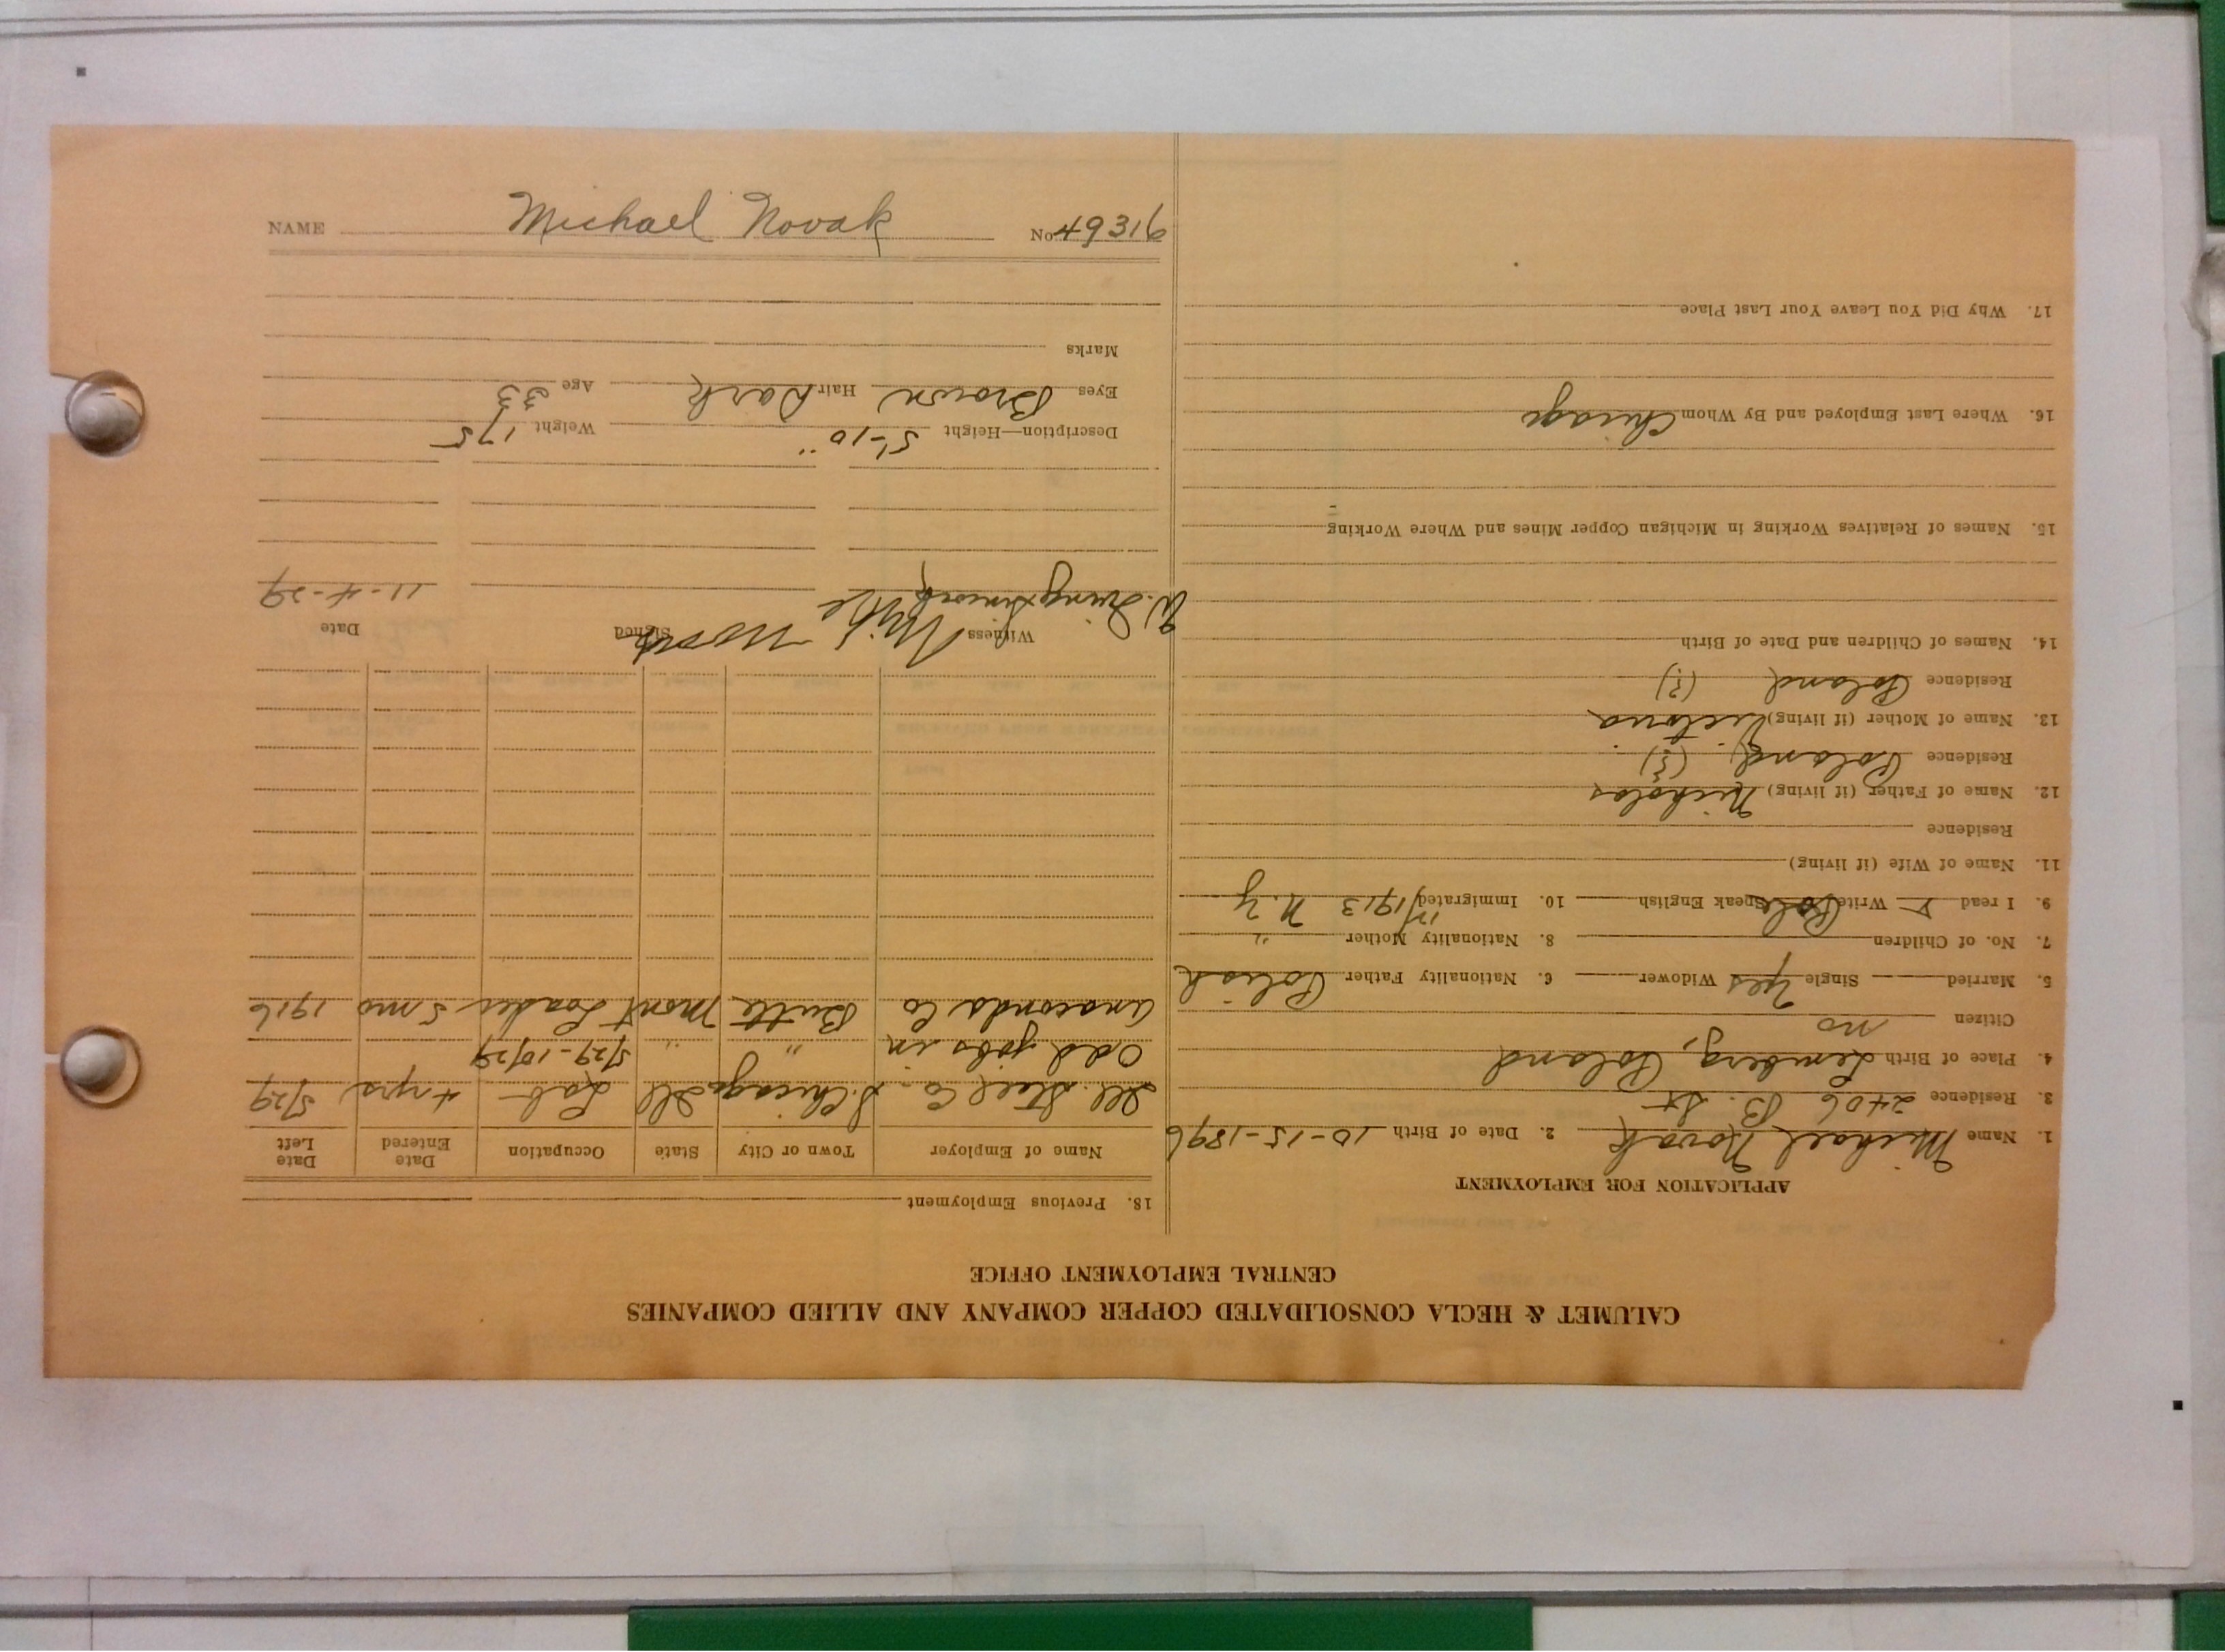 NAME Michael Novak No. 49316
CALUMET & HECLA CONSOLIDATED COPPER COMPANY AND ALLIED COMPANIES
CENTRAL EMPLOYMENT OFFICE
APPLICATION FOR EMPLOYMENT
1. Name Michael Novak 2. Date of Birth 10-15-1896
3. Residence 2406 B. St
4. Place of Birth Lemberg, Poland
Citizen no
5. Married Single Yes Widower 6. Nationality Father Polish
7. No. of Children 8. Nationality Mother "
9. I read Write Speak English 10. Immigrated in 1913 N.Y
11. Name of Wife (if living)
Residence
12. Name of Father (if living) Nicholas
Residence Poland (?)
13. Name of Mother (if living) Victoria
Residence Poland (?)
14. Names of Children and Date of Birth
15. Names of Relatives Working in Michigan Copper Mines and Where Working
16. Where Last Employed and By Whom Chicago
17. Why Did You Leave Your Last Place
18. Previous Employment
Name of Employer Town or City State Occupation Date Entered Date Left
Ill. Steel Co. S. Chicago Ill Lab 4 yrs 5/29
Odd jobs in " " 5/29-10/29
Anaconda Co Butte Mont Loader 5 mo 1916
Witness Signed Date
W. Mike Novak 11-4-29
Description—Height 5'-10" Weight 175
Eyes Brown Hair Dark Age 33
Marks